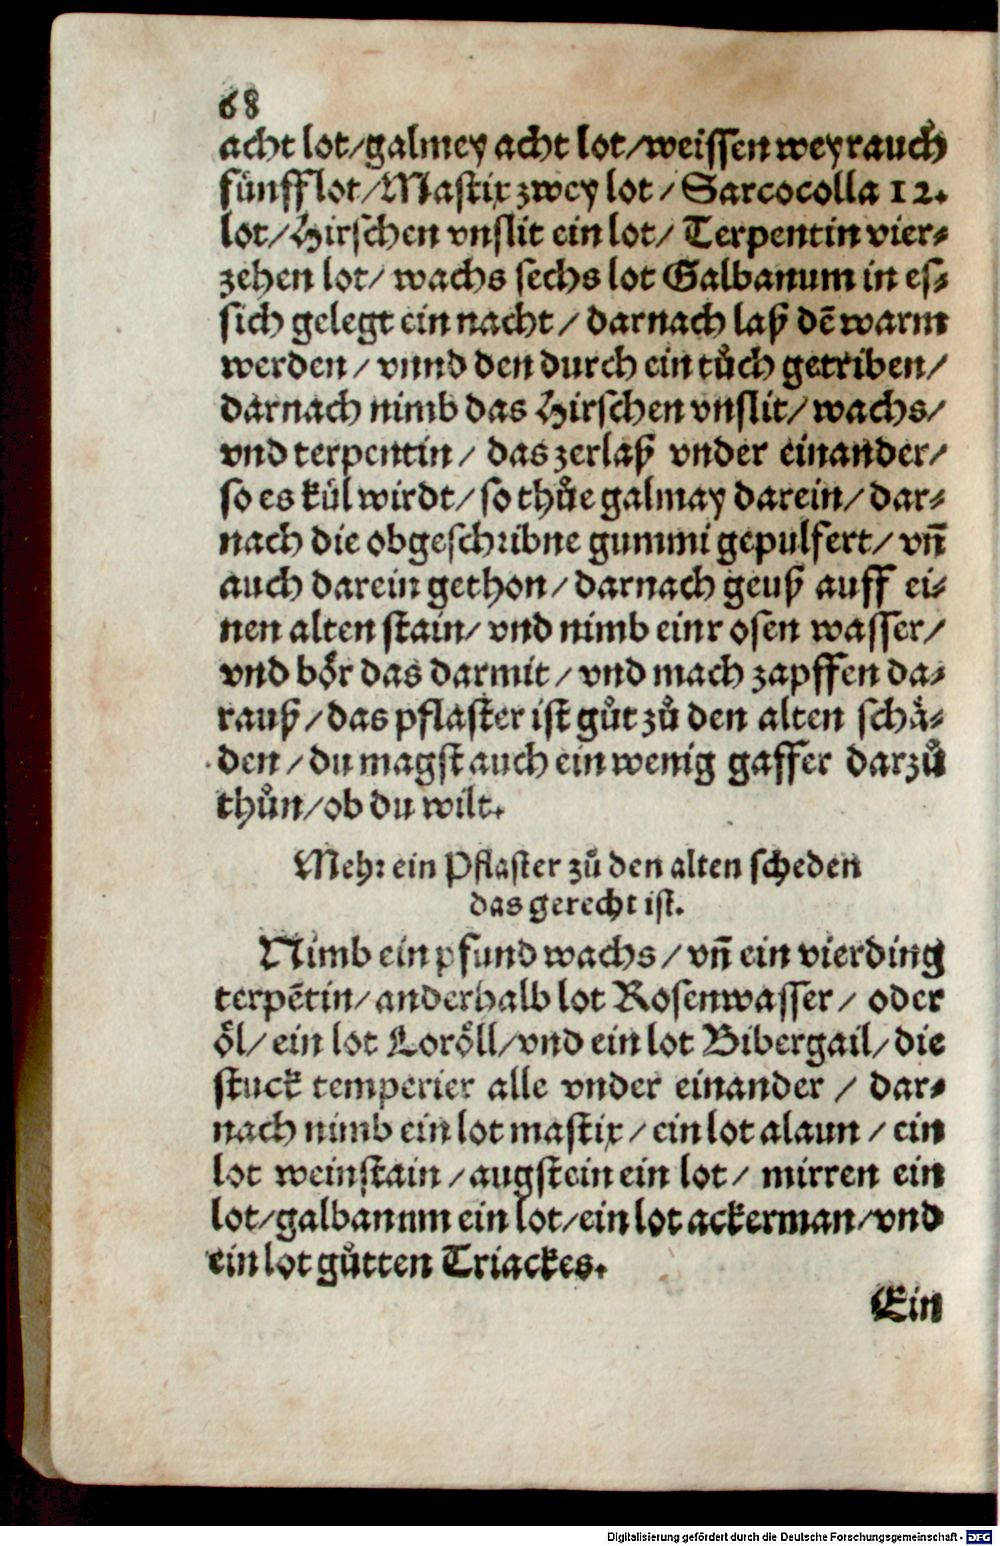 68
acht lot/galmey acht lot/weissen weyrauch
fünff lot/Mastix zwey lot/ Sarcocolla 12.
lot/Hirschen vnslit ein lot/ Terpentin vier-
zehen lot/ wachs sechs lot Galbanum in es-
sich gelegt ein nacht/ darnach laß dē warm
werden/ vnnd den durch ein tůch getriben/
darnach nimb das Hirschen vnslit/ wachs/
vnd terpentin/ das zerlaß vnder einander/
so es kül wirdt/ so thůe galmay darein/ dar-
nach die obgeschribne gummi gepulfert/ vn̄
auch darein gethon/ darnach geuß auff ei-
nen alten stain/ vnd nimb einr osen wasser/
vnd bör das darmit/ vnd mach zapffen da-
rauß/ das pflaster ist gůt zů den alten schä-
den/ du magst auch ein wenig gaffer darzů
thůn/ob du wilt.
Mehr ein Pflaster zů den alten scheden
das gerecht ist.
Nimb ein pfund wachs/ vn̄ ein vierding
terpētin/ anderhalb lot Rosenwasser/ oder
öl/ ein lot Loröll/vnd ein lot Bibergail/ die
stuck temperier alle vnder einander/ dar-
nach nimb ein lot mastix/ ein lot alaun/ ein
lot weinstain/ augstein ein lot/ mirren ein
lot/galbanum ein lot/ein lot ackerman/vnd
ein lot gůtten Triackes.
Ein
Digitalisierung gefördert durch die Deutsche Forschungsgemeinschaft - DFG